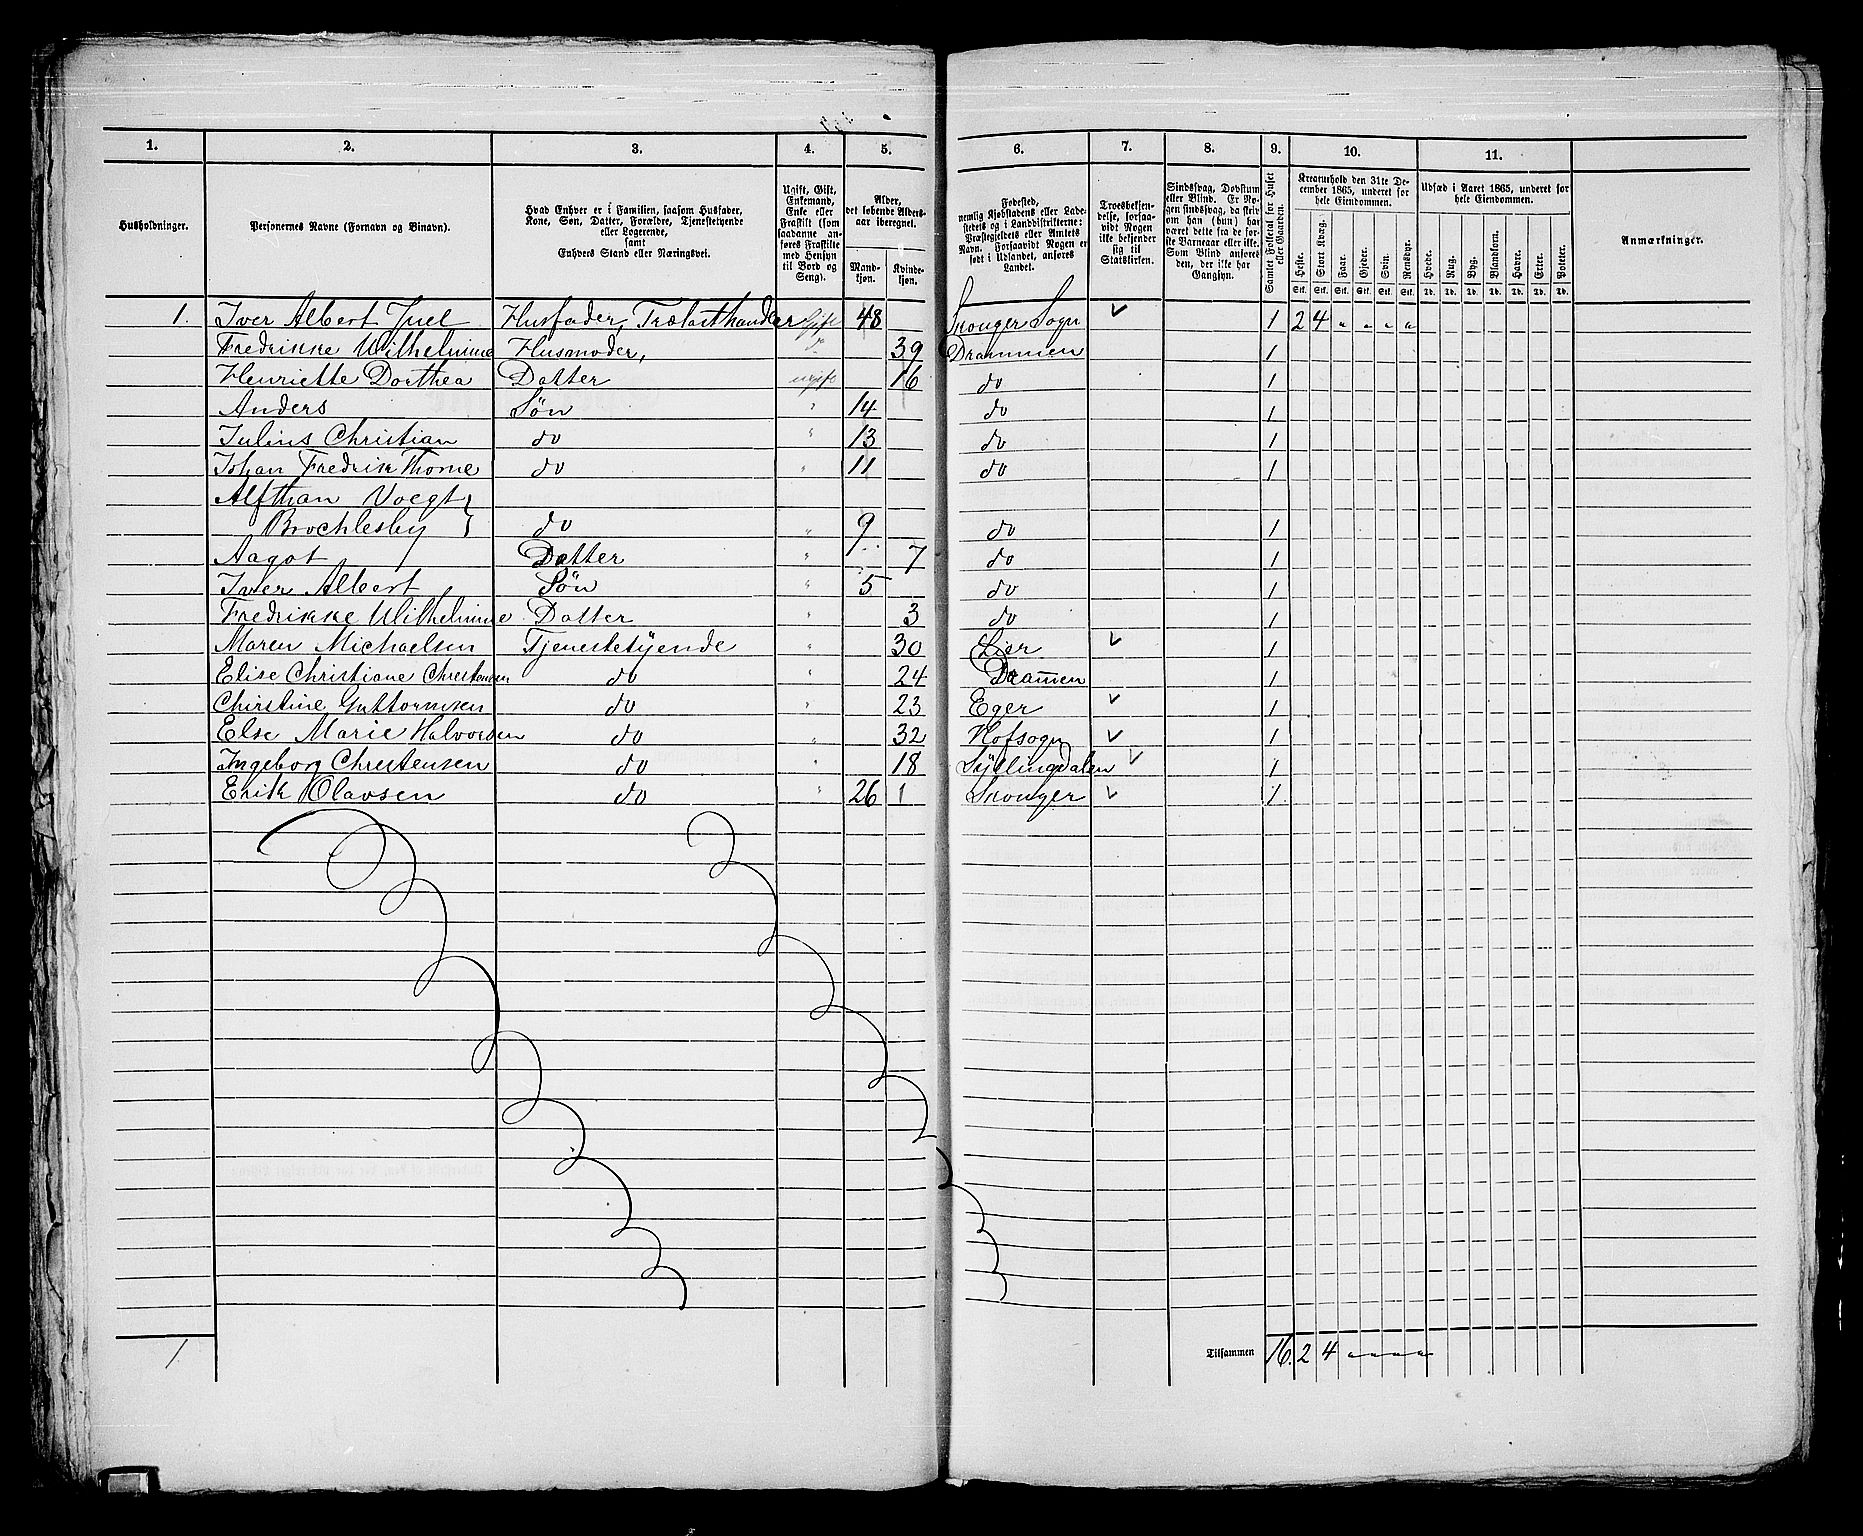 1. 2. 3. 4. 5. 6. 7. 8. 9. 10. 11.
Husholdninger.
Personernes Navne (Fornavn og Binavn).
Hvad Enhver er i Familien, saasom Husfader,
Kone, Søn, Datter, Forældre, Tjenstetyende
eller Logerende,
samt
Enhvers Stand eller Næringsvei.
Ugift, Gift,
Enkemand,
Enke eller
Fraskilt (som
saadanne an-
føres Fraskilte
med Hensyn
til Bord og
Seng).
Alder,
det løbende Alders-
aar iberegnet.
Mand-
kjøn.
Kvinde-
kjøn.
Fødested,
nemlig Kjøbstadens eller Lade-
stedets og i Landdistrikterne:
Præstegjeldets eller Amtets
Navn. Forsaavidt Nogen er
født i Udlandet, anføres
Landet.
Troesbekjen-
delse, forsaa-
vidt Nogen
ikke bekjender
sig til
Statskirken.
Sindssvag, Døvstum
eller Blind. Er No-
gen sindssvag, da skriv
om han (hun) har
været dette fra de før-
ste Barneaar eller ikke.
Som Blind anføres
den, der ikke har
Gangsyn.
Samlet Folketal for Huset
eller Gaarden.
Kreaturhold den 31te De-
cember 1865, underet for
hele Eiendommen.
Heste. Stort Kvæg. Faar. Gjeder. Svin. Rensdyr.
Stk. Stk. Stk. Stk. Stk. Stk.
Udsæd i Aaret 1865, underet for
hele Eiendommen.
Hvede. Rug. Byg. Blandkorn. Havre. Erter. Poteter.
Td. Td. Td. Td. Td. Td. Td.
Anmærkninger.
1. Iver Albert Juel Husfader, Trælasthandler Gift 48 Skouger Sogn ✓ 1 2 4 " " " "
Fredrikke Wilhelmine Husmoder, do 39 Drammen 1
Henriette Dorthea Datter ugift 16 do 1
Anders Søn " 14 do 1
Julius Christian do " 13 do 1
Johan Fredrik Thorne do " 11 do 1
Alfthan Voegt }
Brochlesby } do " 9 do 1
Aagot Datter " 7 do 1
Iver Albert Søn " 5 do 1
Fredrikke Wilhelmine Datter " 3 do 1
Maren Michaelsen Tjenestetyende " 30 Lier ✓ 1
Elise Christiane Christensen do " 24 Drammen 1
Christine Guttormsen do " 23 Eger ✓ 1
Else Marie Halvorsen do " 32 Hofsogn ✓ 1
Ingeborg Christensen do " 18 Syllingdalen ✓ 1
Erik Olavsen do " 26 1 Skouger ✓ 1
1 Tilsammen 16. 2 4 " " " "